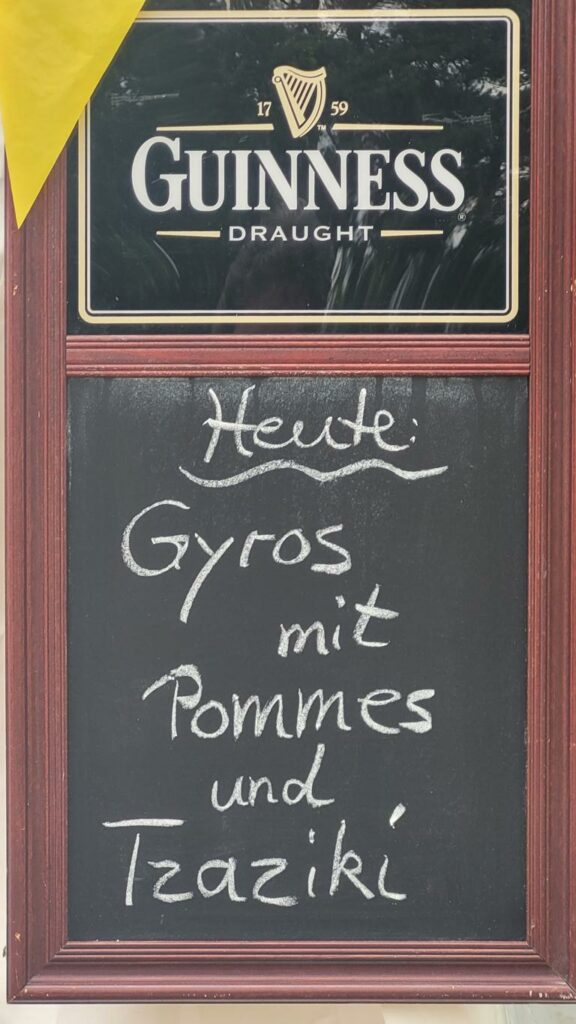 17 59
GUINNESS
DRAUGHT
Heute:
Gyros
mit
Pommes
und
Tzaziki